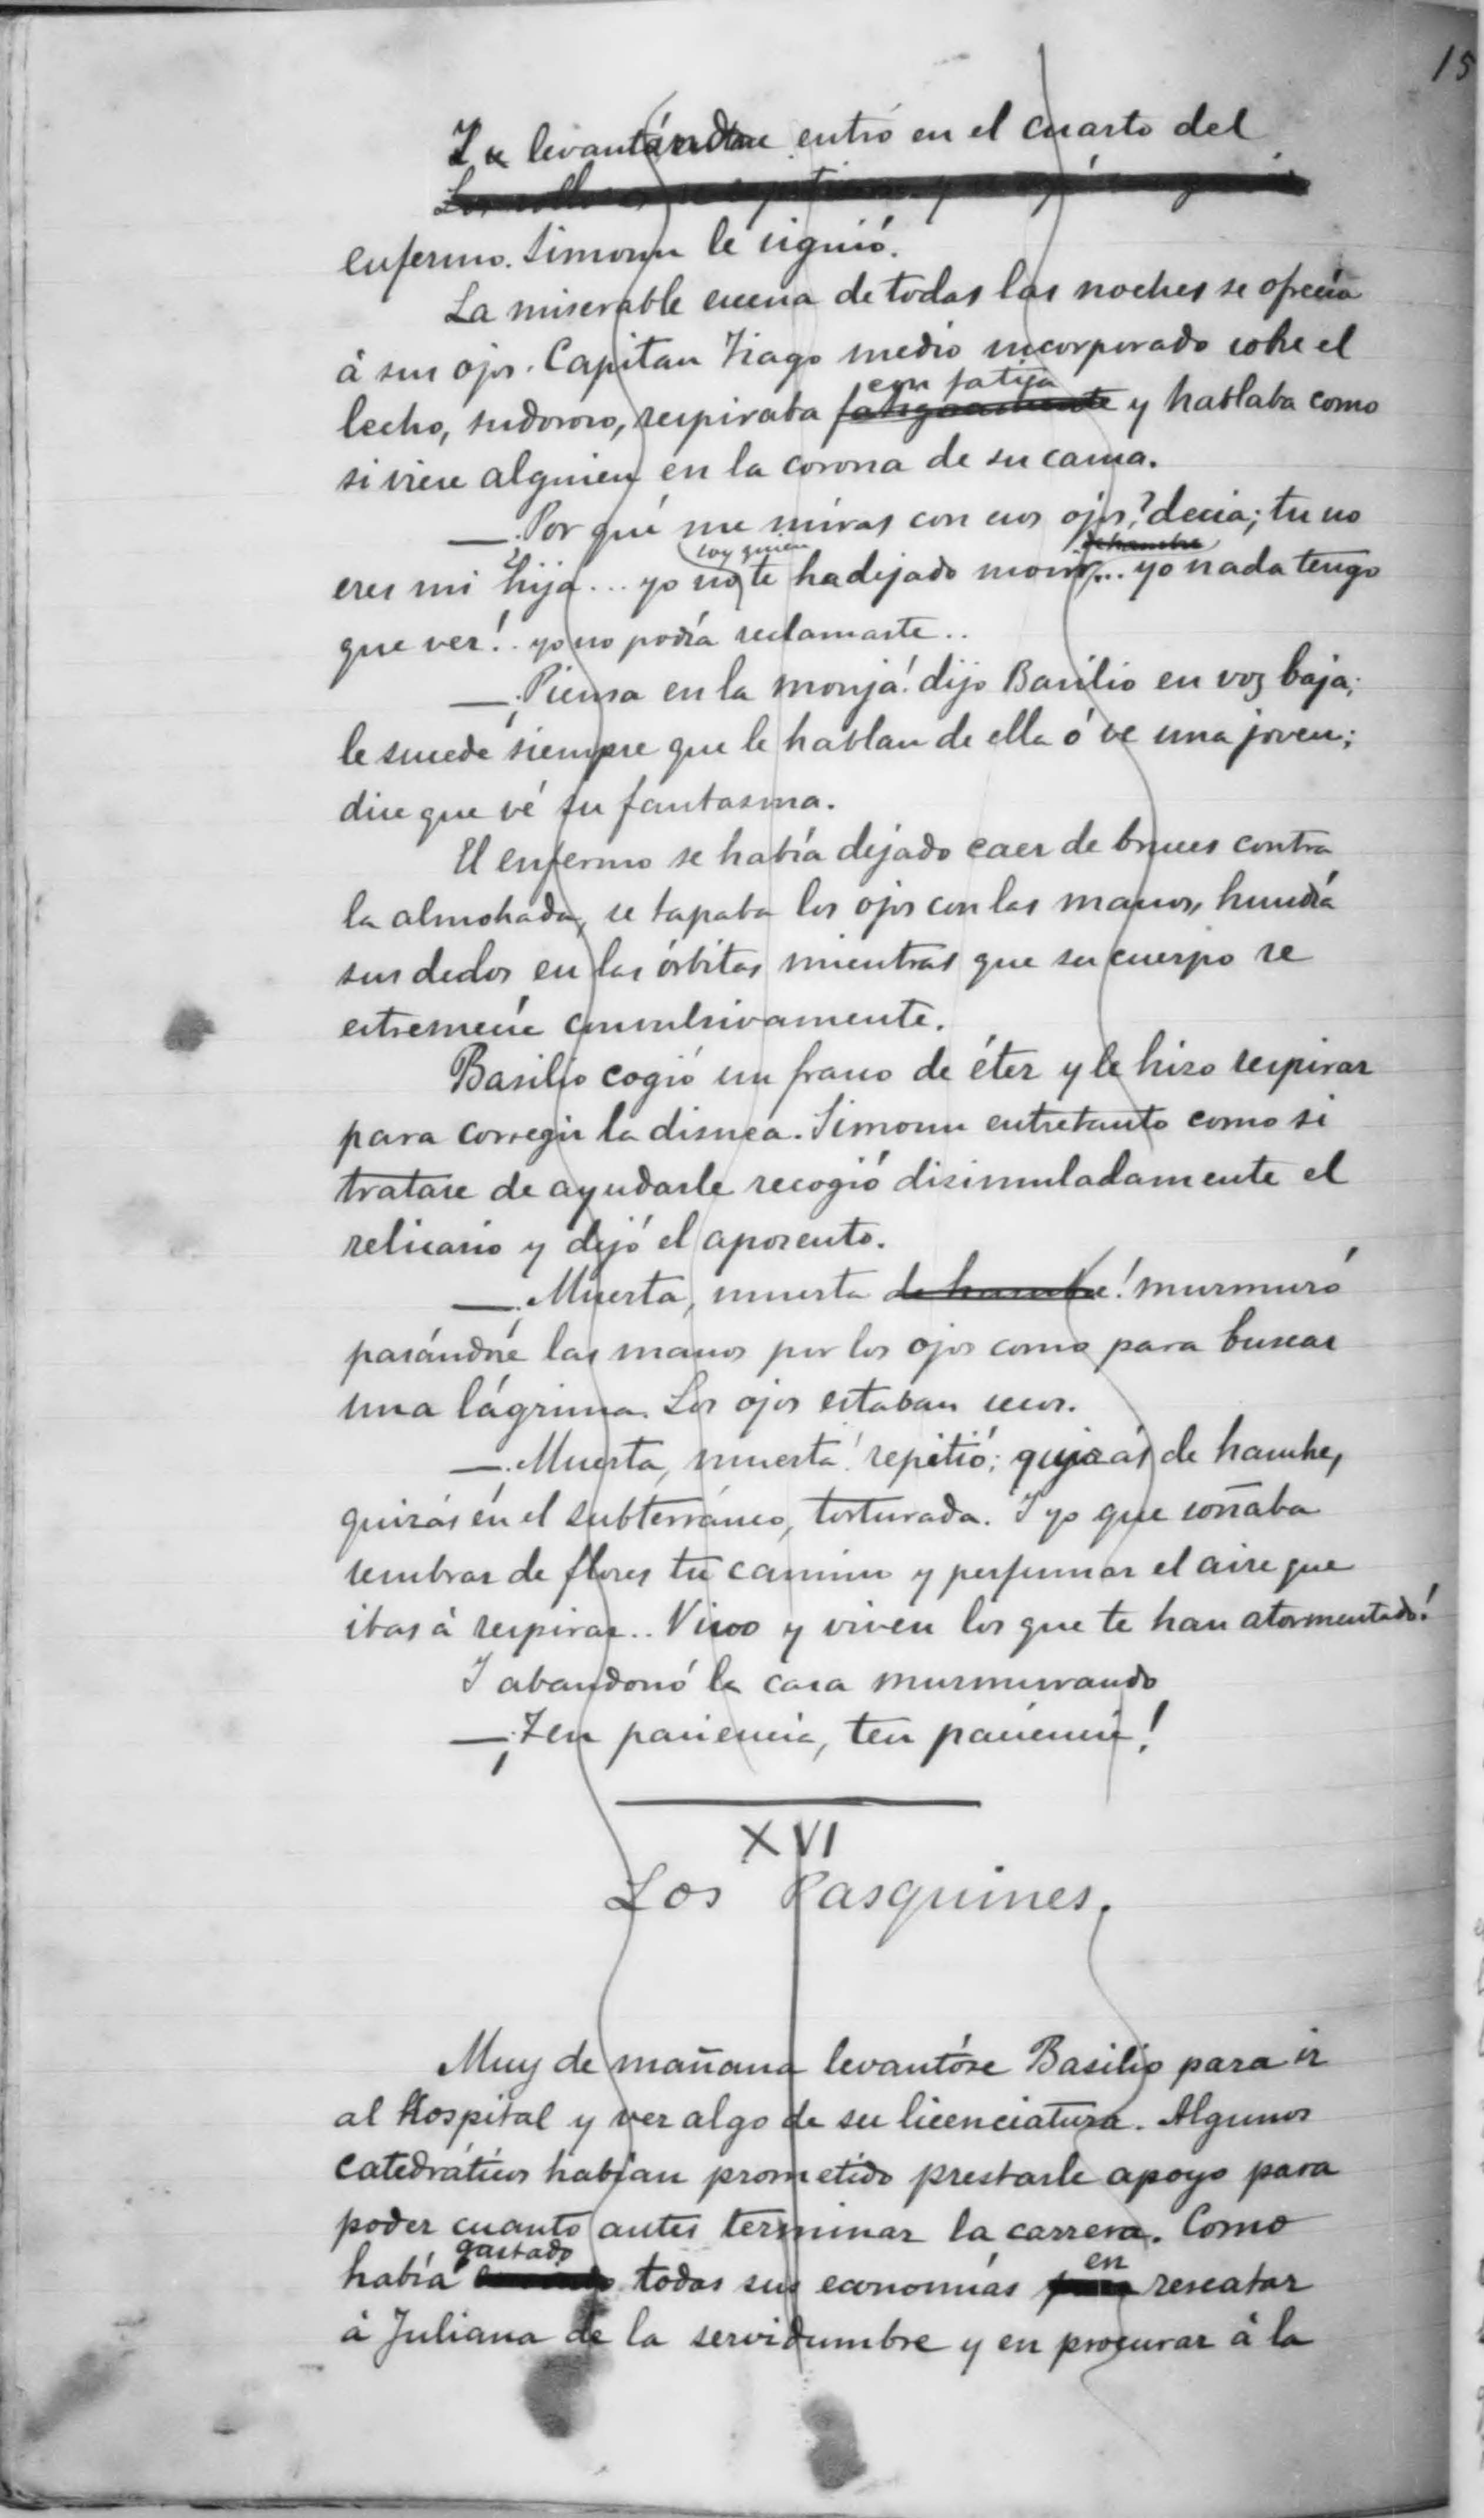 15
Y levantándose entró en el cuarto del
enfermo. Simoun le siguió.
La miserable escena de todas las noches se ofrecía
á sus ojos. Capitan Tiago medio incorporado sobre el
con fatiga
lecho, sudoroso, respiraba fatigosamente y hablaba como
si viese alguien en la corona de su cama.
—¿Por qué me miras con esos ojos? decia; tu no
soy quien de hambre
eres mi hija... yo no te ha dejado morir... yo nada tengo
que ver!.. yo no podía reclamarte..
—¡Piensa en la monja! dijo Basilio en voz baja;
le sucede siempre que le hablan de ella ó ve una joven;
dice que vé su fantasma.
El enfermo se había dejado caer de bruces contra
la almohada, se tapaba los ojos con las manos, hundía
sus dedos en las órbitas mientras que su cuerpo se
estremecíe convulsivamente.
Basilio cogió un frasco de éter y le hizo respirar
para corregir la disnea. Simoun entretanto como si
tratase de ayudarle recogió disimuladamente el
relicario y dejó el aposento.
—¡Muerta, muerta de hambre! murmuró
pasándose las manos por los ojos como para buscar
una lágrima. Los ojos estaban secos.
—¡Muerta, muerta! repitió; quizás de hambre,
quizás en el subterráneo, torturada. Y yo que soñaba
sembrar de flores tu camino y perfumar el aire que
ibas á respirar.. Vivo y viven los que te han atormentado!
Y abandonó la casa murmurando
—¡Ten paciencia, ten paciencia!
XVI
Los Pasquines.
Muy de mañana levantóse Basilio para ir
al Hospital y ver algo de su licenciatura. Algunos
catedráticos habían prometido prestarle apoyo para
poder cuanto antes terminar la carrera. Como
gastado en
había todas sus economías para rescatar
á Juliana de la servidumbre y en procurar á la